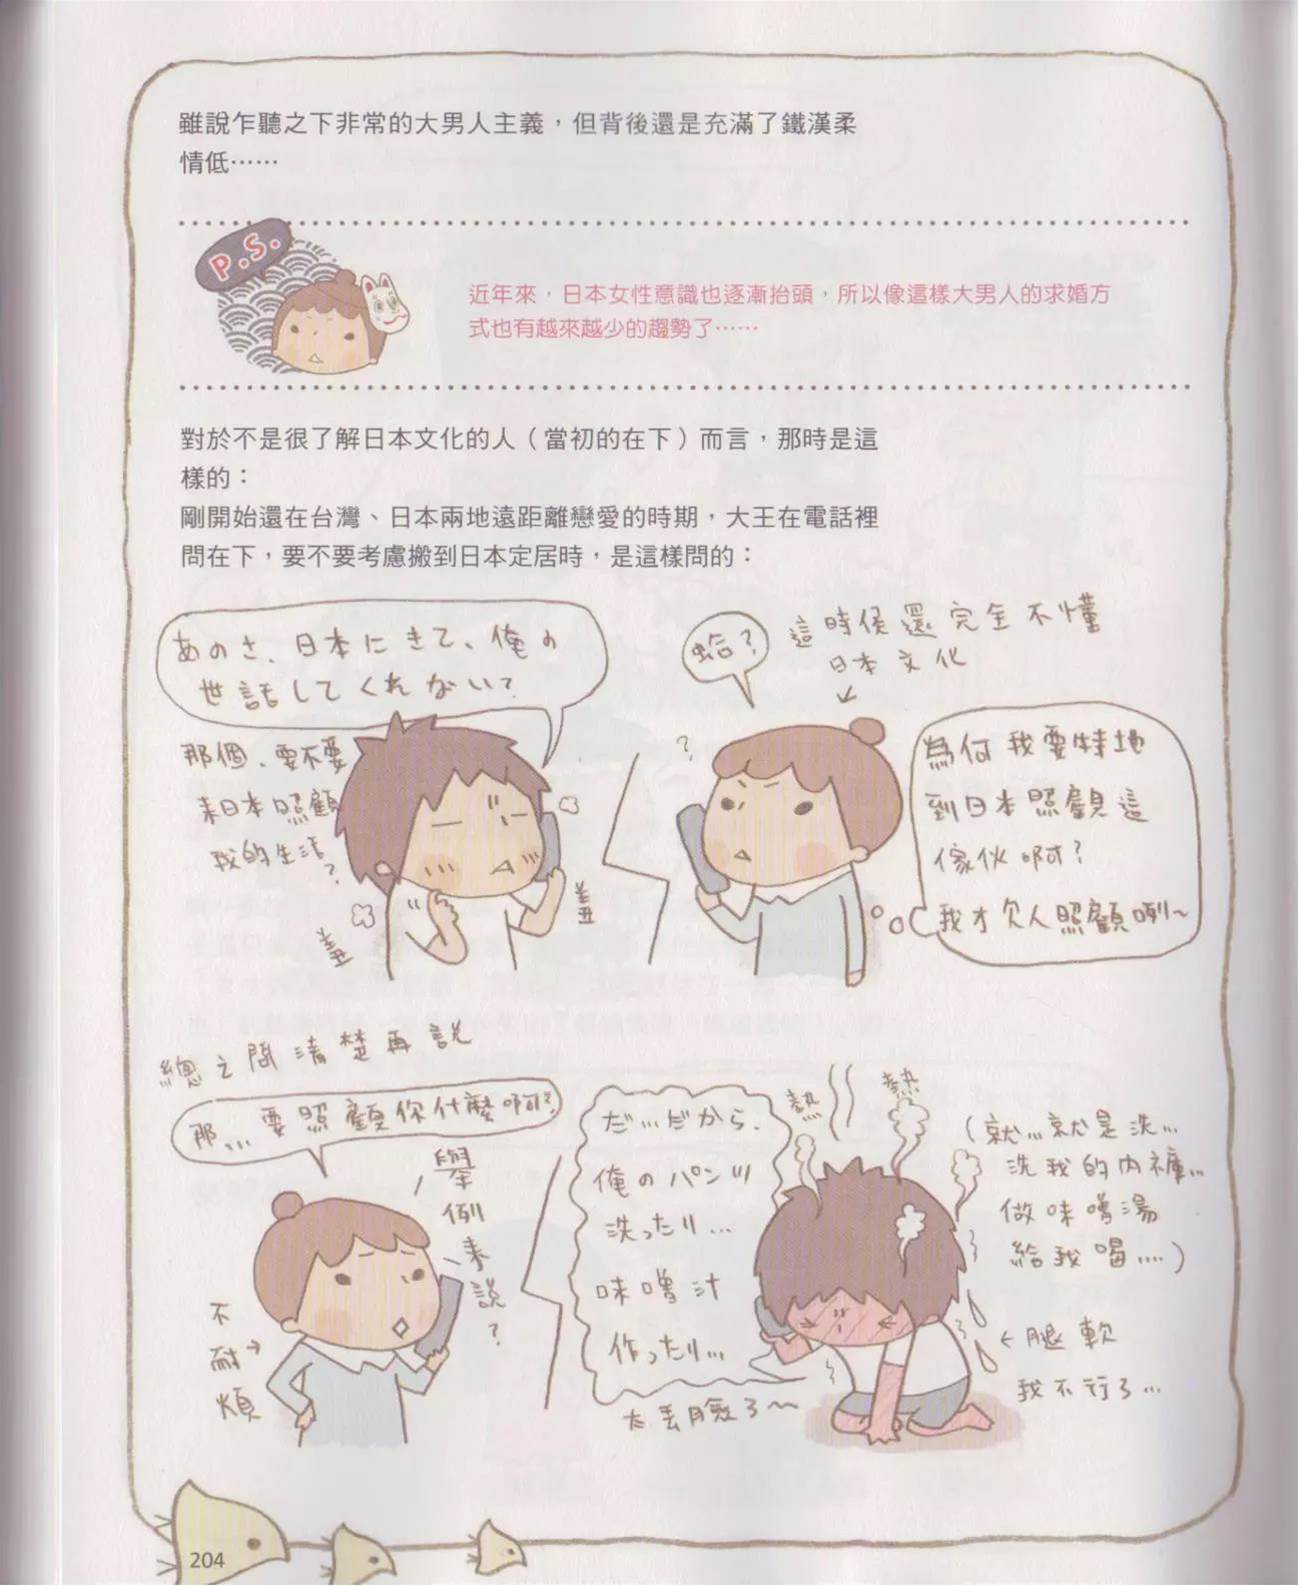 雖說乍聽之下非常的大男人主義，但背後還是充滿了鐵漢柔
情低⋯⋯
P.S.
近年來，日本女性意識也逐漸抬頭，所以像這樣大男人的求婚方
式也有越來越少的趨勢了⋯⋯
對於不是很了解日本文化的人（當初的在下）而言，那時是這
樣的：
剛開始還在台灣、日本兩地遠距離戀愛的時期，大王在電話裡
問在下，要不要考慮搬到日本定居時，是這樣問的：
あのさ、日本にきて、俺の
世話してくれない？
那個、要不要
來日本照顧
我的生活
？
羞
羞
蛤？
這時侯還完全不懂
日本文化
?
為何我要特地
到日本照顧這
傢伙啊？
我才欠人照顧咧~
總之問清楚再說
那...要照顧你什麼啊?
舉例來說？
不耐煩
だ...だから、
俺のパンツ
洗ったり...
味噌汁
作ったり...
熱
熱
(就...就是洗...
洗我的內褲...
做味噌湯
給我喝....)
腿軟
我不行了...
太丟臉了~
204